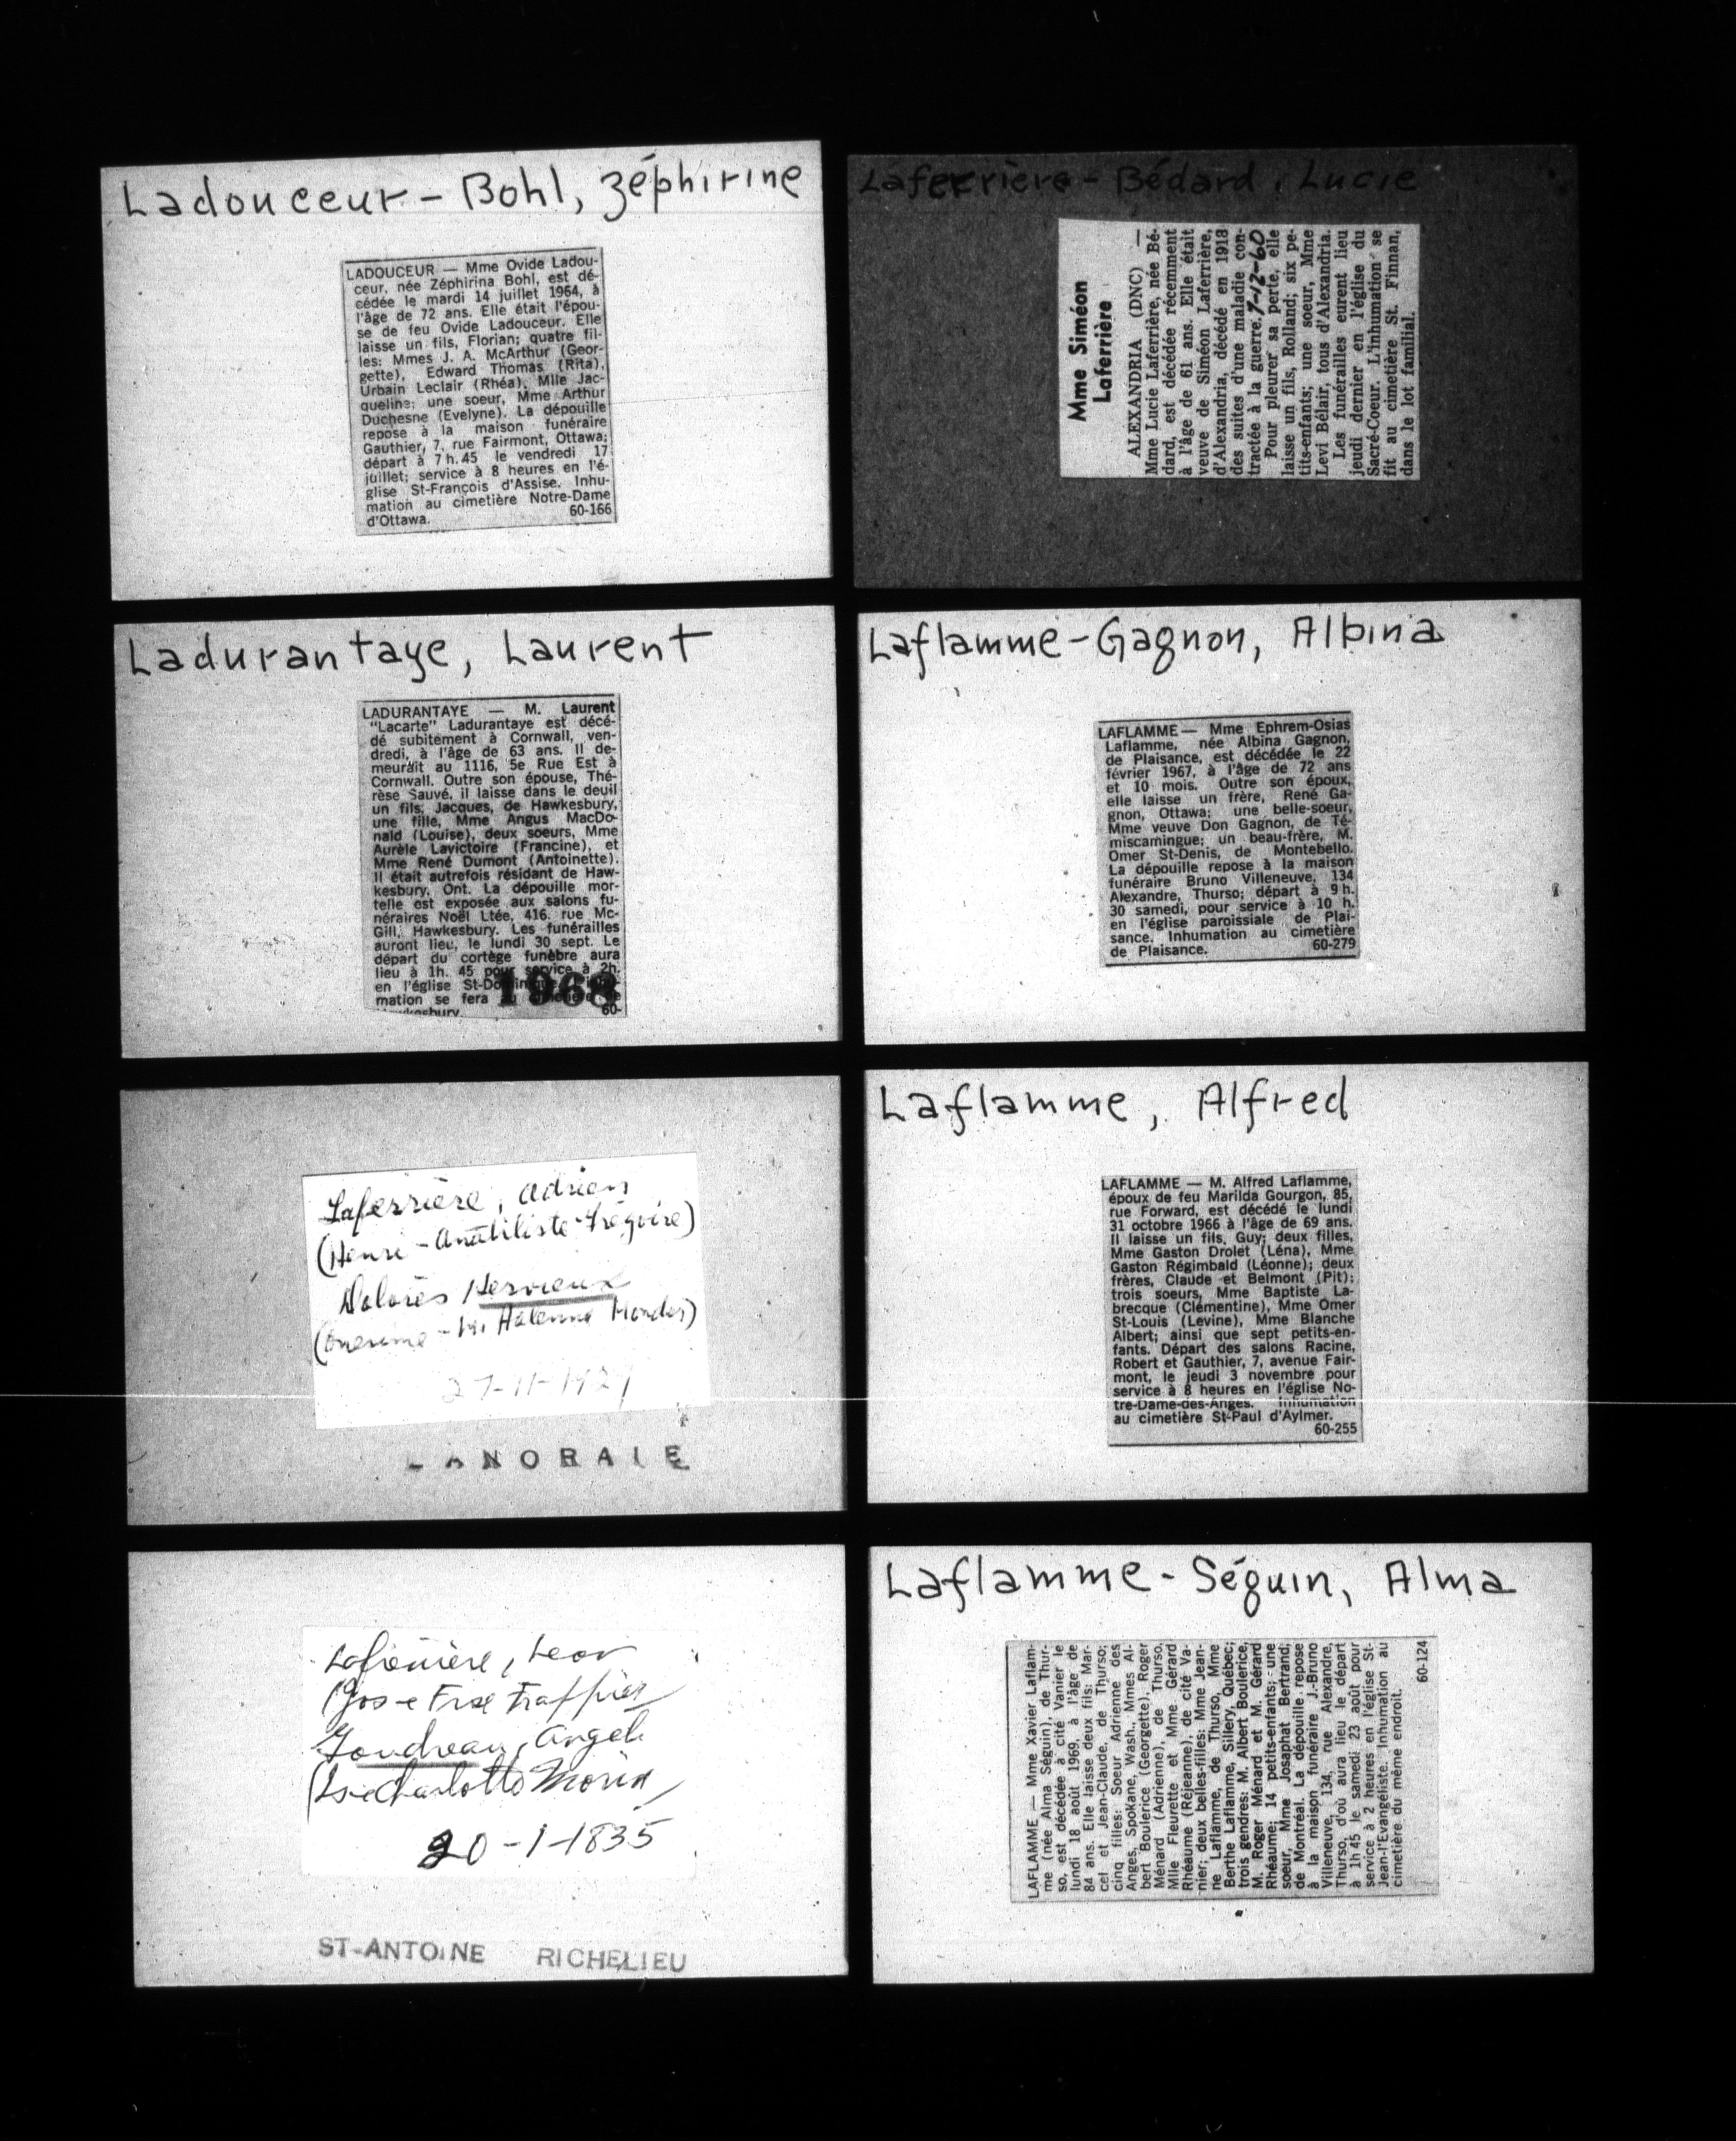 Ladouceur - Bohl, Zéphirine
LADOUCEUR — Mme Ovide Ladou-
ceur, née Zéphirina Bohl, est dé-
cédée le mardi 14 juillet 1964, à
l'âge de 72 ans. Elle était l'épou-
se de feu Ovide Ladouceur. Elle
laisse un fils, Florian; quatre fil-
les: Mmes J. A. McArthur (Geor-
gette), Edward Thomas (Rita),
Urbain Leclair (Rhéa), Mlle Jac-
queline; une soeur, Mme Arthur
Duchesne (Evelyne). La dépouille
repose à la maison funéraire
Gauthier, 7, rue Fairmont, Ottawa;
départ à 7 h. 45 le vendredi 17
juillet; service à 8 heures en l'é-
glise St-François d'Assise. Inhu-
mation au cimetière Notre-Dame
d'Ottawa. 60-166
Ladurantaye, Laurent
LADURANTAYE — M. Laurent
"Lacarte" Ladurantaye est décé-
dé subitement à Cornwall, ven-
dredi, à l'âge de 63 ans. Il de-
meurait au 1116, 5e Rue Est à
Cornwall. Outre son épouse, Thé-
rèse Sauvé, il laisse dans le deuil
un fils, Jacques, de Hawkesbury,
une fille, Mme Angus MacDo-
nald (Louise), deux soeurs, Mme
Aurèle Lavictoire (Francine), et
Mme René Dumont (Antoinette).
Il était autrefois résidant de Haw-
kesbury, Ont. La dépouille mor-
telle est exposée aux salons fu-
néraires Noël Ltée, 416, rue Mc-
Gill, Hawkesbury. Les funérailles
auront lieu, le lundi 30 sept. Le
départ du cortège funèbre aura
lieu à 1h. 45 pour service à 2h.
en l'église
mation se fera
60-
1968
Laferrière, Adrien
(Henri -
Dolorès Hervieux
27-11-1921
LANORAIE
Lafrenière, Leon
Jos-e Frse
Goudreau, Angel
Charlotte Morin
20-1-1835
ST-ANTOINE RICHELIEU
Laferrière - Bédard, Lucie
Mme Siméon
Laferrière
ALEXANDRIA (DNC) —
Mme Lucie Laferrière, née Bé-
dard, est décédée récemment
à l'âge de 61 ans. Elle était
veuve de Siméon Laferrière,
d'Alexandria, décédé en 1918
des suites d'une maladie con-
tractée à la guerre. 7-12-60
Pour pleurer sa perte, elle
laisse un fils, Rolland; six pe-
tits-enfants; une soeur, Mme
Levi Bélair, tous d'Alexandria.
Les funérailles eurent lieu
jeudi dernier en l'église du
Sacré-Coeur. L'inhumation se
fit au cimetière St. Finnan,
dans le lot familial.
Laflamme - Gagnon, Albina
LAFLAMME — Mme Ephrem-Osias
Laflamme, née Albina Gagnon,
de Plaisance, est décédée le 22
février 1967, à l'âge de 72 ans
et 10 mois. Outre son époux,
elle laisse un frère, René Ga-
gnon, Ottawa; une belle-soeur,
Mme veuve Don Gagnon, de Té-
miscamingue; un beau-frère, M.
Omer St-Denis, de Montebello.
La dépouille repose à la maison
funéraire Bruno Villeneuve, 134
Alexandre, Thurso; départ à 9 h.
30 samedi, pour service à 10 h.
en l'église paroissiale de Plai-
sance. Inhumation au cimetière
de Plaisance. 60-279
Laflamme, Alfred
LAFLAMME — M. Alfred Laflamme,
époux de feu Marilda Gourgon, 85,
rue Forward, est décédé le lundi
31 octobre 1966 à l'âge de 69 ans.
Il laisse un fils, Guy; deux filles,
Mme Gaston Drolet (Léna), Mme
Gaston Régimbald (Léonne); deux
frères, Claude et Belmont (Pit);
trois soeurs, Mme Baptiste La-
brecque (Clémentine), Mme Omer
St-Louis (Levine), Mme Blanche
Albert; ainsi que sept petits-en-
fants. Départ des salons Racine,
Robert et Gauthier, 7, avenue Fair-
mont, le jeudi 3 novembre pour
service à 8 heures en l'église No-
tre-Dame-des-Anges. Inhumation
au cimetière St-Paul d'Aylmer.
60-255
Laflamme - Séguin, Alma
LAFLAMME — Mme Xavier Laflam-
me (née Alma Séguin), de Thur-
so, est décédée à cité Vanier le
lundi 18 août 1969, à l'âge de
84 ans. Elle laisse deux fils: Mar-
cel et Jean-Claude, de Thurso;
cinq filles: Soeur Adrienne des
Anges, Spokane, Wash., Mmes Al-
bert Boulerice (Georgette), Roger
Ménard (Adrienne), de Thurso,
Mlle Fleurette et Mme Gérard
Rhéaume (Réjeanne), de cité Va-
nier; deux belles-filles: Mme Jean-
ne Laflamme, de Thurso, Mme
Berthe Laflamme, Sillery, Québec;
trois gendres: M. Albert Boulerice,
M. Roger Ménard et M. Gérard
Rhéaume; 14 petits-enfants; une
soeur, Mme Josaphat Bertrand,
de Montréal. La dépouille repose
à la maison funéraire J.-Bruno
Villeneuve, 134, rue Alexandre,
Thurso, d'où aura lieu le départ
à 1h 45 le samedi 23 août pour
service à 2 heures en l'église St-
Jean-l'Evangéliste. Inhumation au
cimetière du même endroit.
60-124